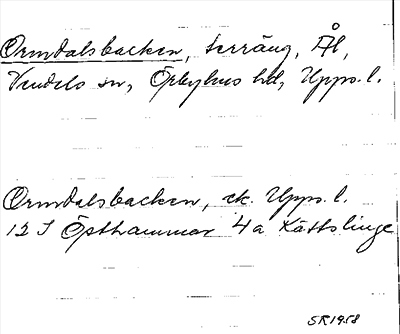 Ormdalsbacken, terräng, Ål,
Vendels sn, Örbyhus hd, Upps. l.
Ormdalsbacken, ek. Upps. l.
12 I Östhammar 4 a Kättslinge
SR 1958